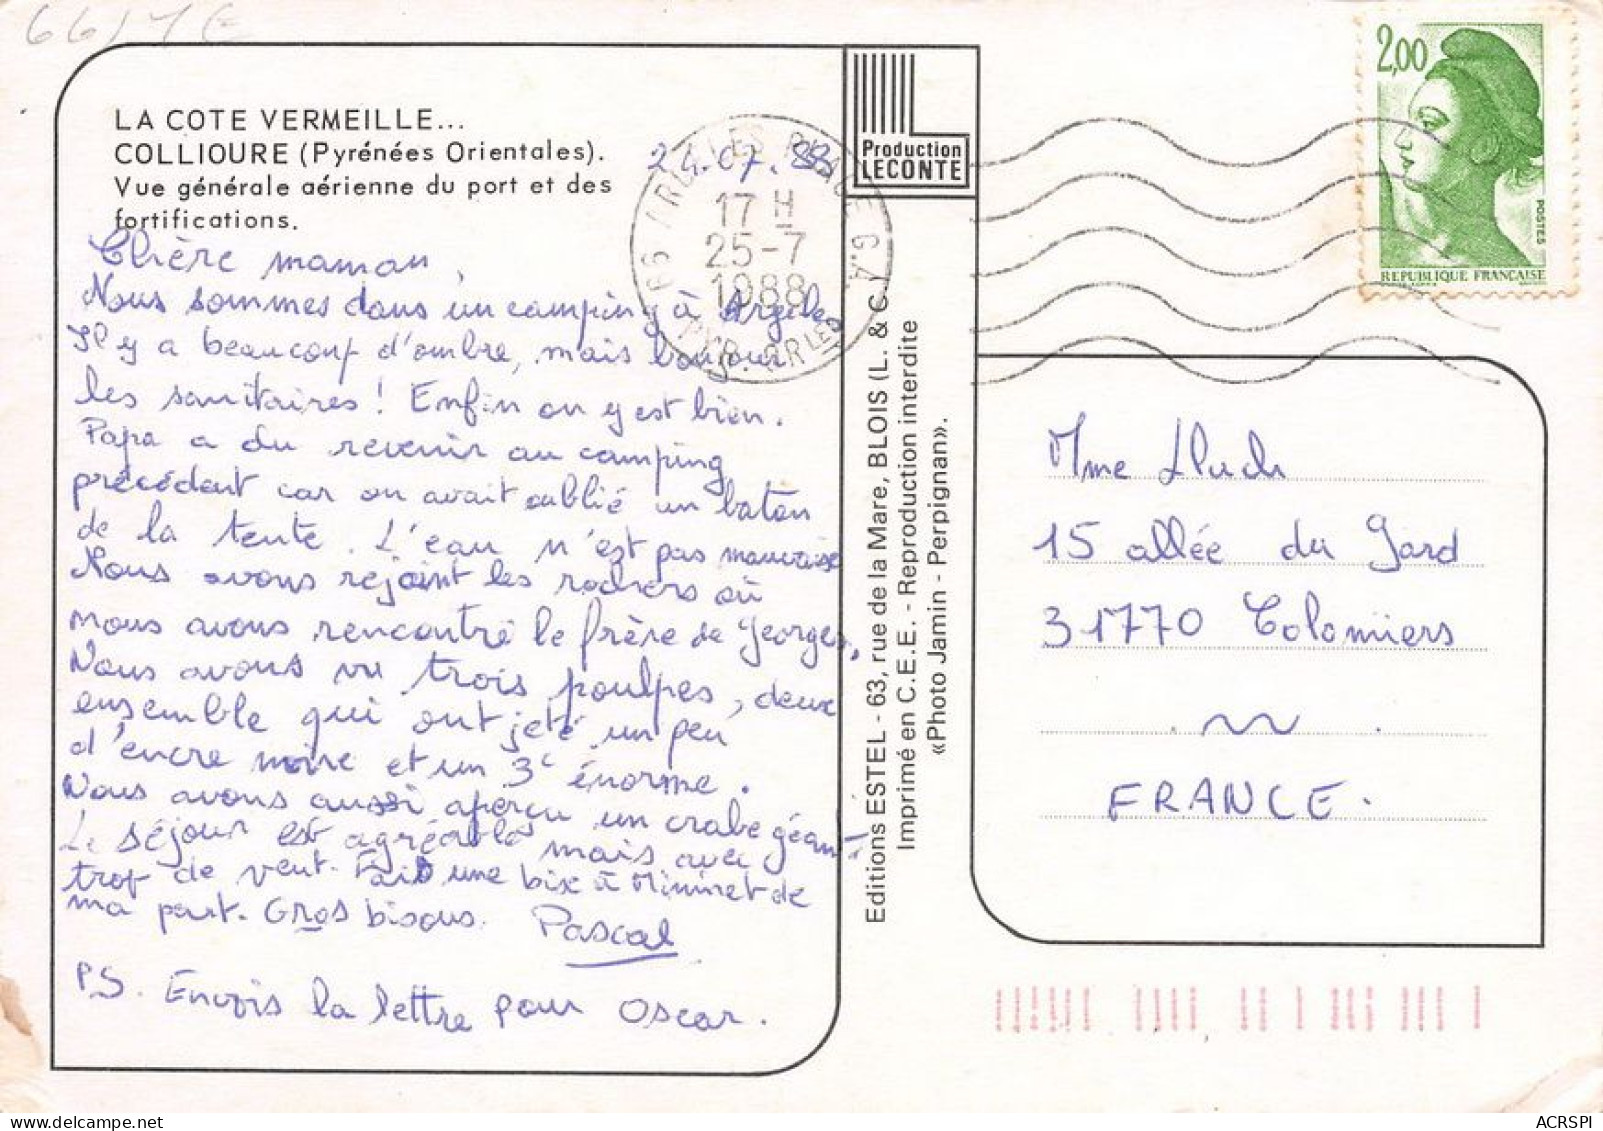 LA COTE VERMEILLE...
COLLIOURE (Pyrénées Orientales).
Vue générale aérienne du port et des
fortifications.
24.07.88
Chère maman,
Nous sommes dans un camping à Argeles
Il y a beaucoup d'ombre, mais bonjour
les sanitaires ! Enfin on y est bien.
Papa a du revenir au camping
précédent car on avait oublié un baton
de la tente. L'eau n'est pas mauvaise
Nous avons rejoint les rochers où
nous avons rencontré le frère de Georges.
Nous avons vu trois poulpes, deux
ensemble qui ont jeté un peu
d'encre noire et un 3e énorme.
Nous avons aussi aperçu un crabe géant
Le séjour est agréable mais avec
trop de vent. Fais une bise à Mininet de
ma part. Gros bisous. Pascal
PS. Envois la lettre pour Oscar.
Production
LECONTE
66 ARGELES PLAGE G.A.
17 H
25-7
1988
PYR. ORLES
Editions ESTEL - 63, rue de la Mare, BLOIS (L. & C.)
Imprimé en C.E.E. - Reproduction interdite
«Photo Jamin - Perpignan».
2,00
POSTES
REPUBLIQUE FRANÇAISE
Mme Lluch
15 allée du Gard
31770 Colomiers
FRANCE.
ACRSPI